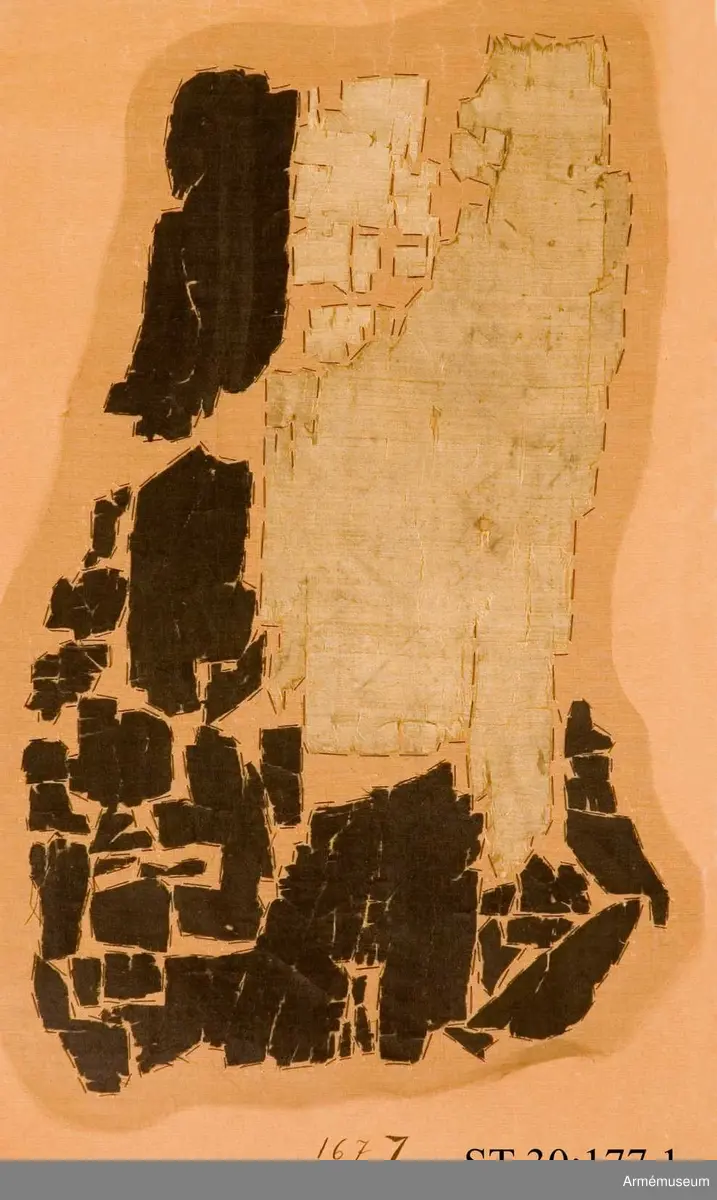 1677
ST 30:177:1
Armémuseum